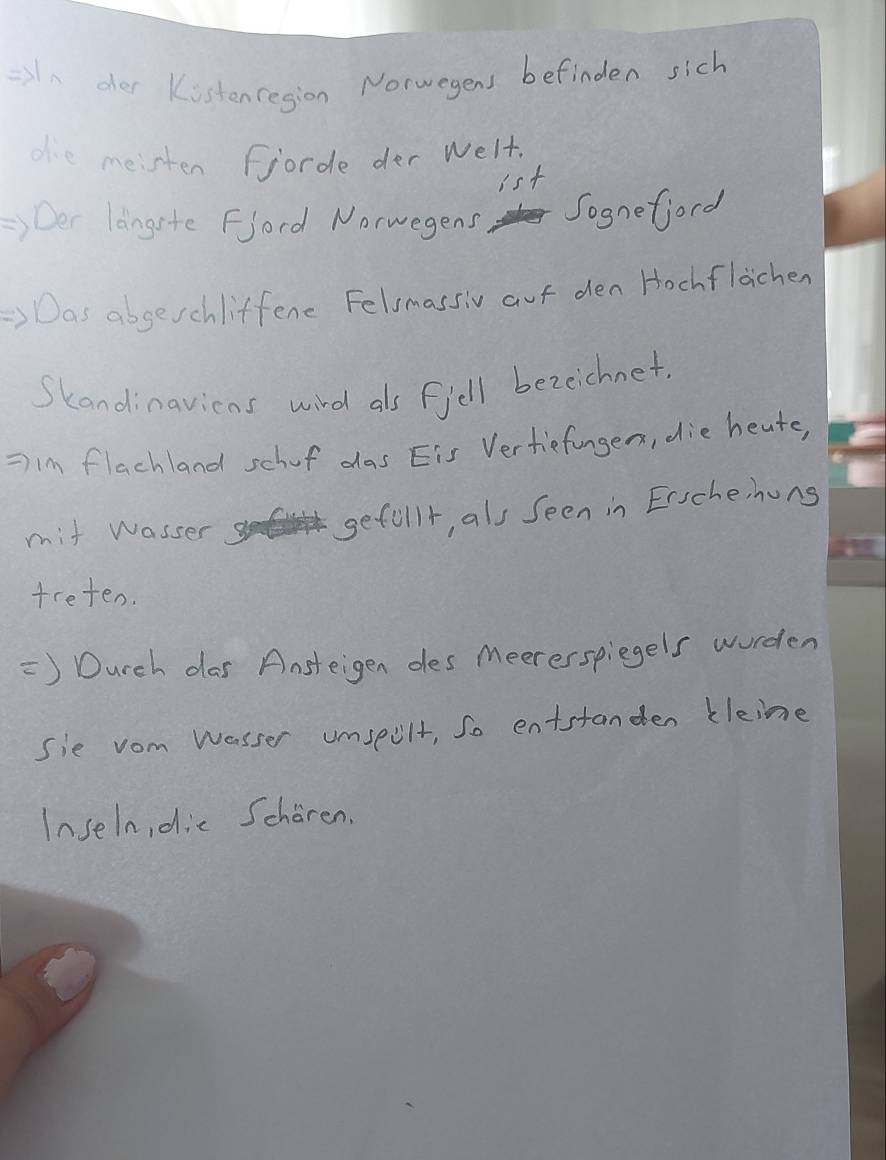 =>In der Küstenregion Norwegens befinden sich
die meisten Fjorde der Welt.
=>Der längste Fjord Norwegens ist Sognefjord
=>Das abgeschliffene Felsmassiv auf den Hochflächen
Skandinaviens wird als Fjell bezeichnet.
=>im flachland schuf das Eis Vertiefungen, die heute,
mit Wasser gefüllt, als Seen in Erscheinung
treten.
=) Durch das Ansteigen des Meeresspiegels wurden
sie vom Wasser umspült, So entstanden kleine
Inseln, die Schären.